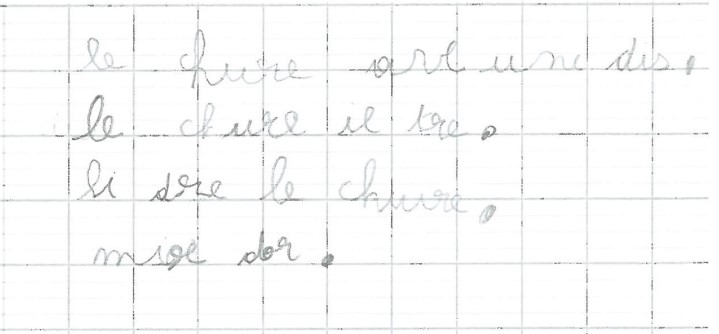 le chure ort une des.
le chure il tre.
li sre le chure.
mioe dor.